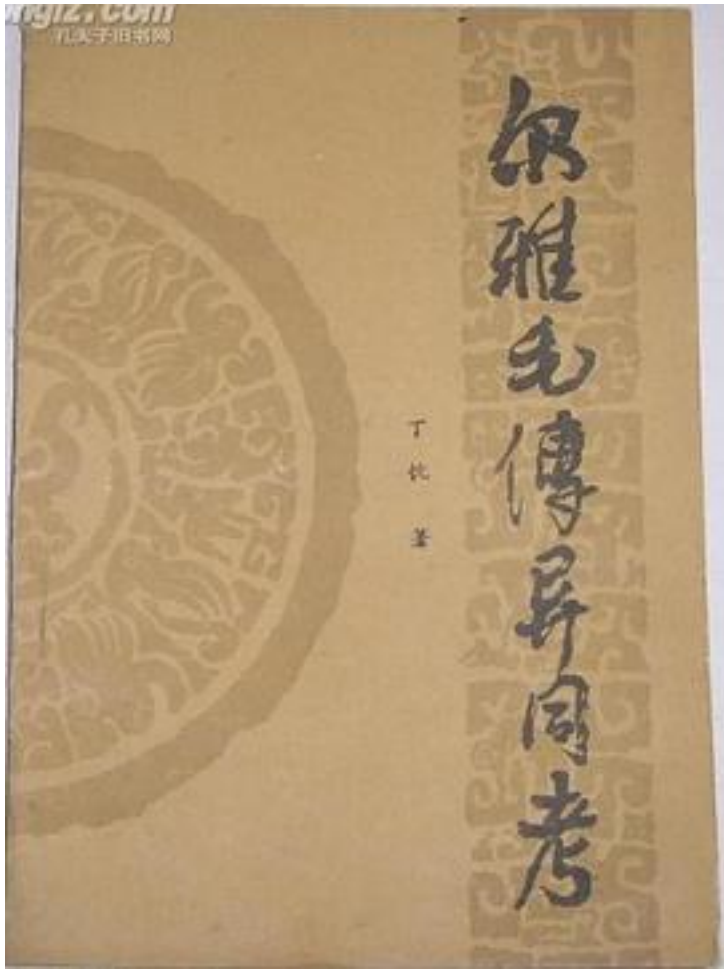 ongfz.com
孔夫子旧书网
尔雅毛傳异同考
丁忱 著